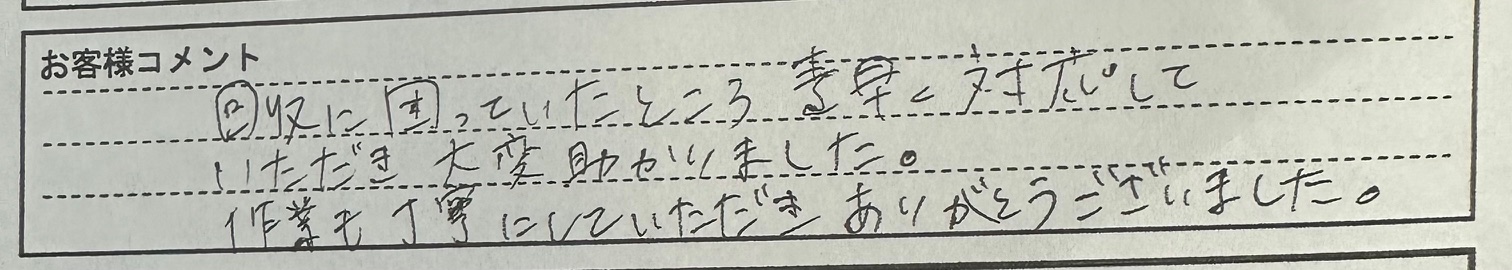 お客様コメント
回収に困っていたところ 素早く対応して
いただき 大変助かりました。
作業も丁寧にしていただき ありがとうございました。